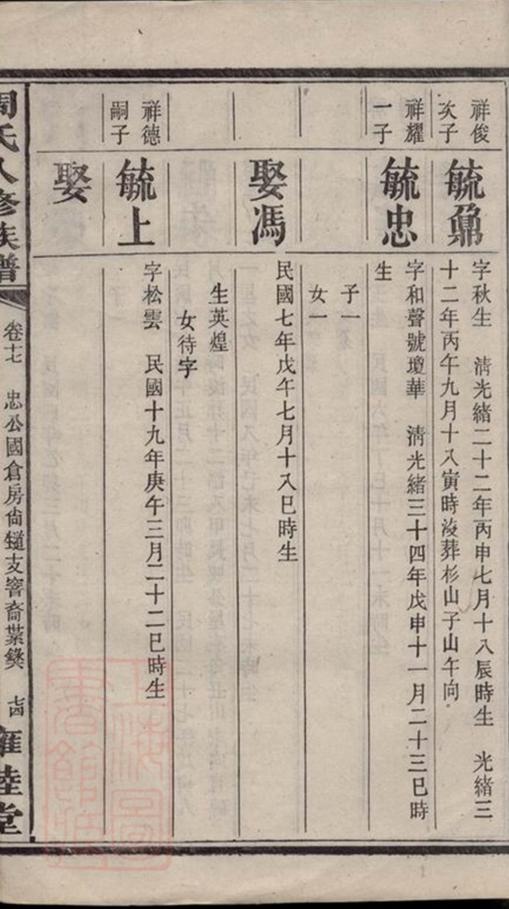 祥俊
次子
毓鼐
字秋生 清光緒二十二年丙申七月十八辰時生 光緒三
十二年丙午九月十八寅時歿葬杉山子山午向
祥耀
一子
毓忠
字和聲號瓊華 清光緒三十四年戊申十一月二十三巳時
生
子一
女一
娶馮
民國七年戊午七月十八巳時生
生英煌
女待字
祥德
嗣子
毓上
字松雲 民國十九年庚午三月二十二巳時生
娶
周氏八修族譜
卷十七 忠公國倉房尚
支
裔
七四
睦堂